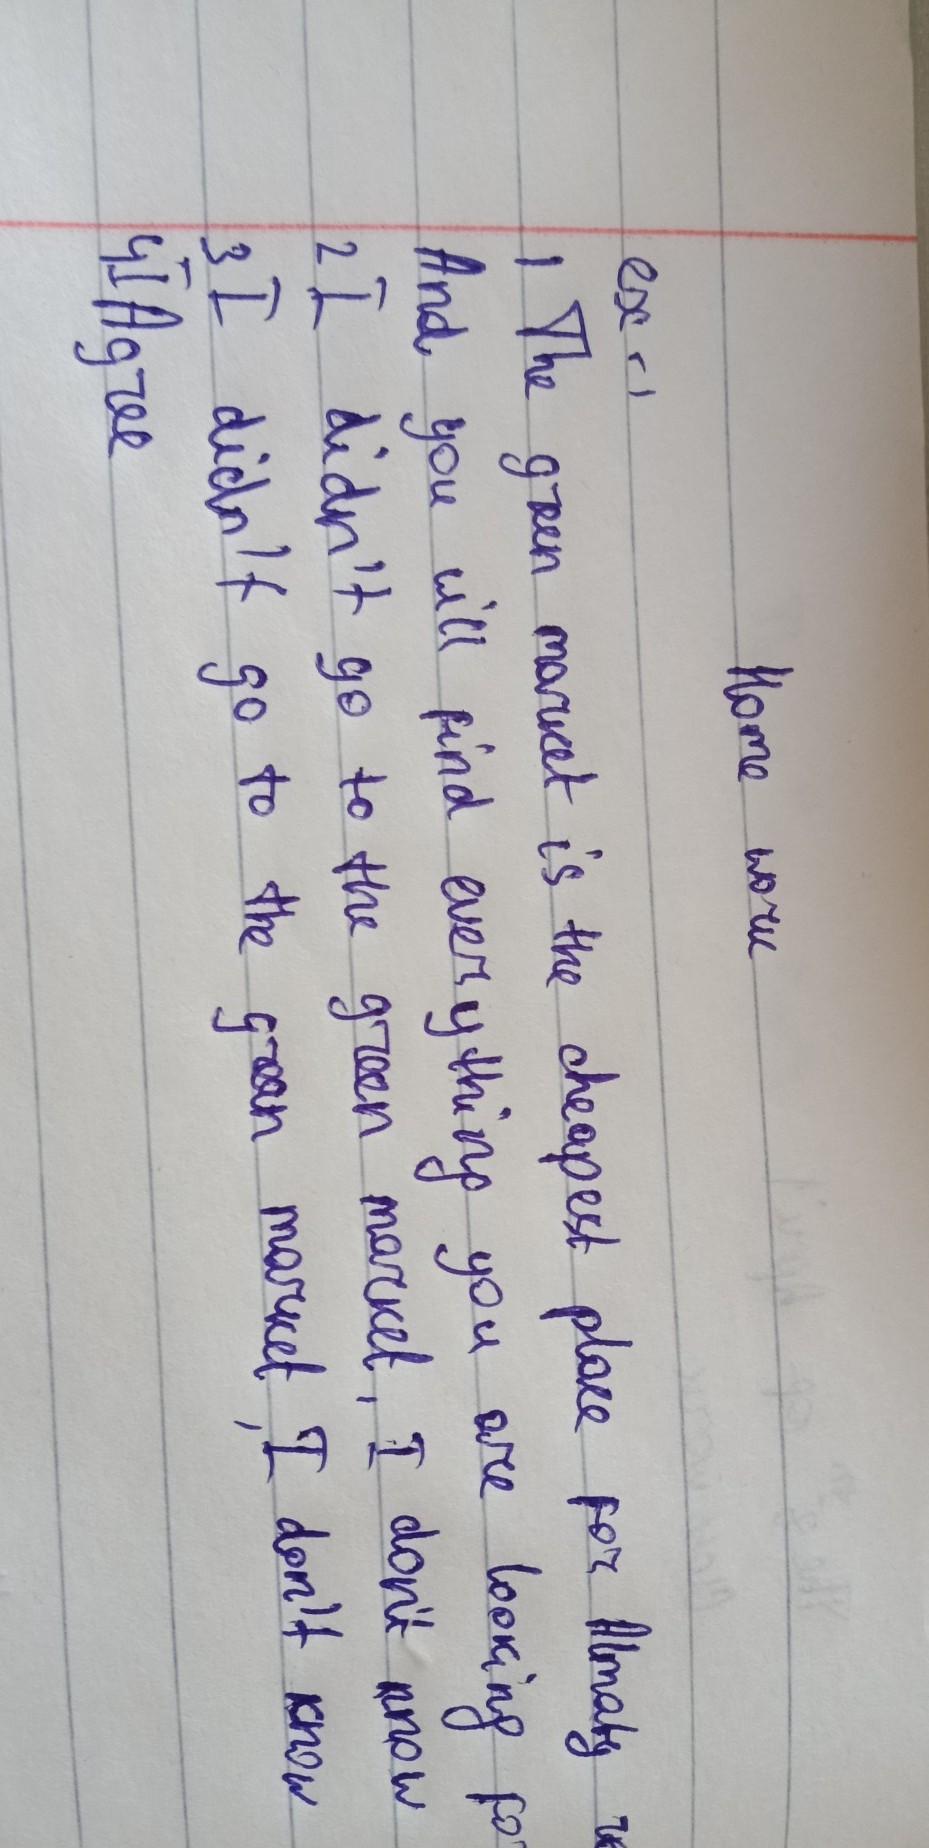 Home work
ex - 1
1 The green market is the cheapest place for Almaty
And you will find everything you are looking for
2 I didn't go to the green market, I don't know
3 I didn't go to the green market, I don't know
4 I Agree